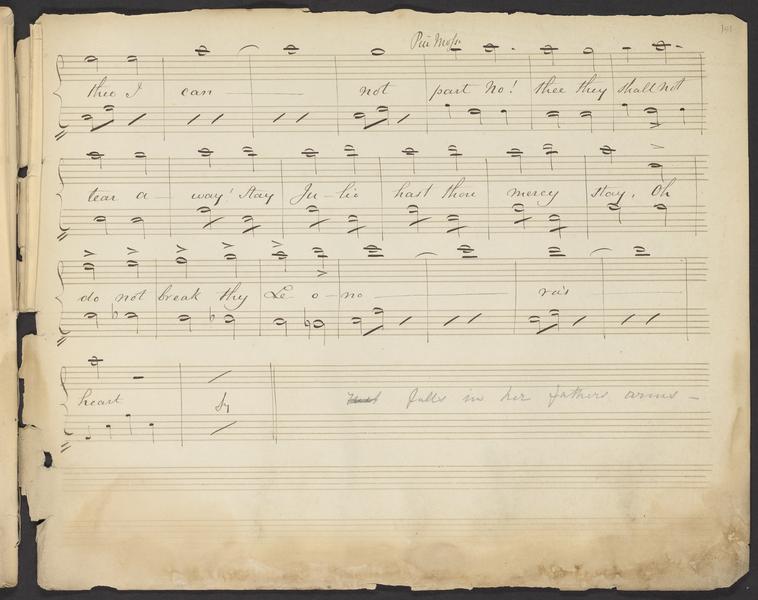 Piu Mosso
thee I can not part No! thee they shall not
tear a- way! stay Ju-lio hast thou mercy stay, Oh
do not break thy Le-o-no ra's
heart
falls in her fathers arms-